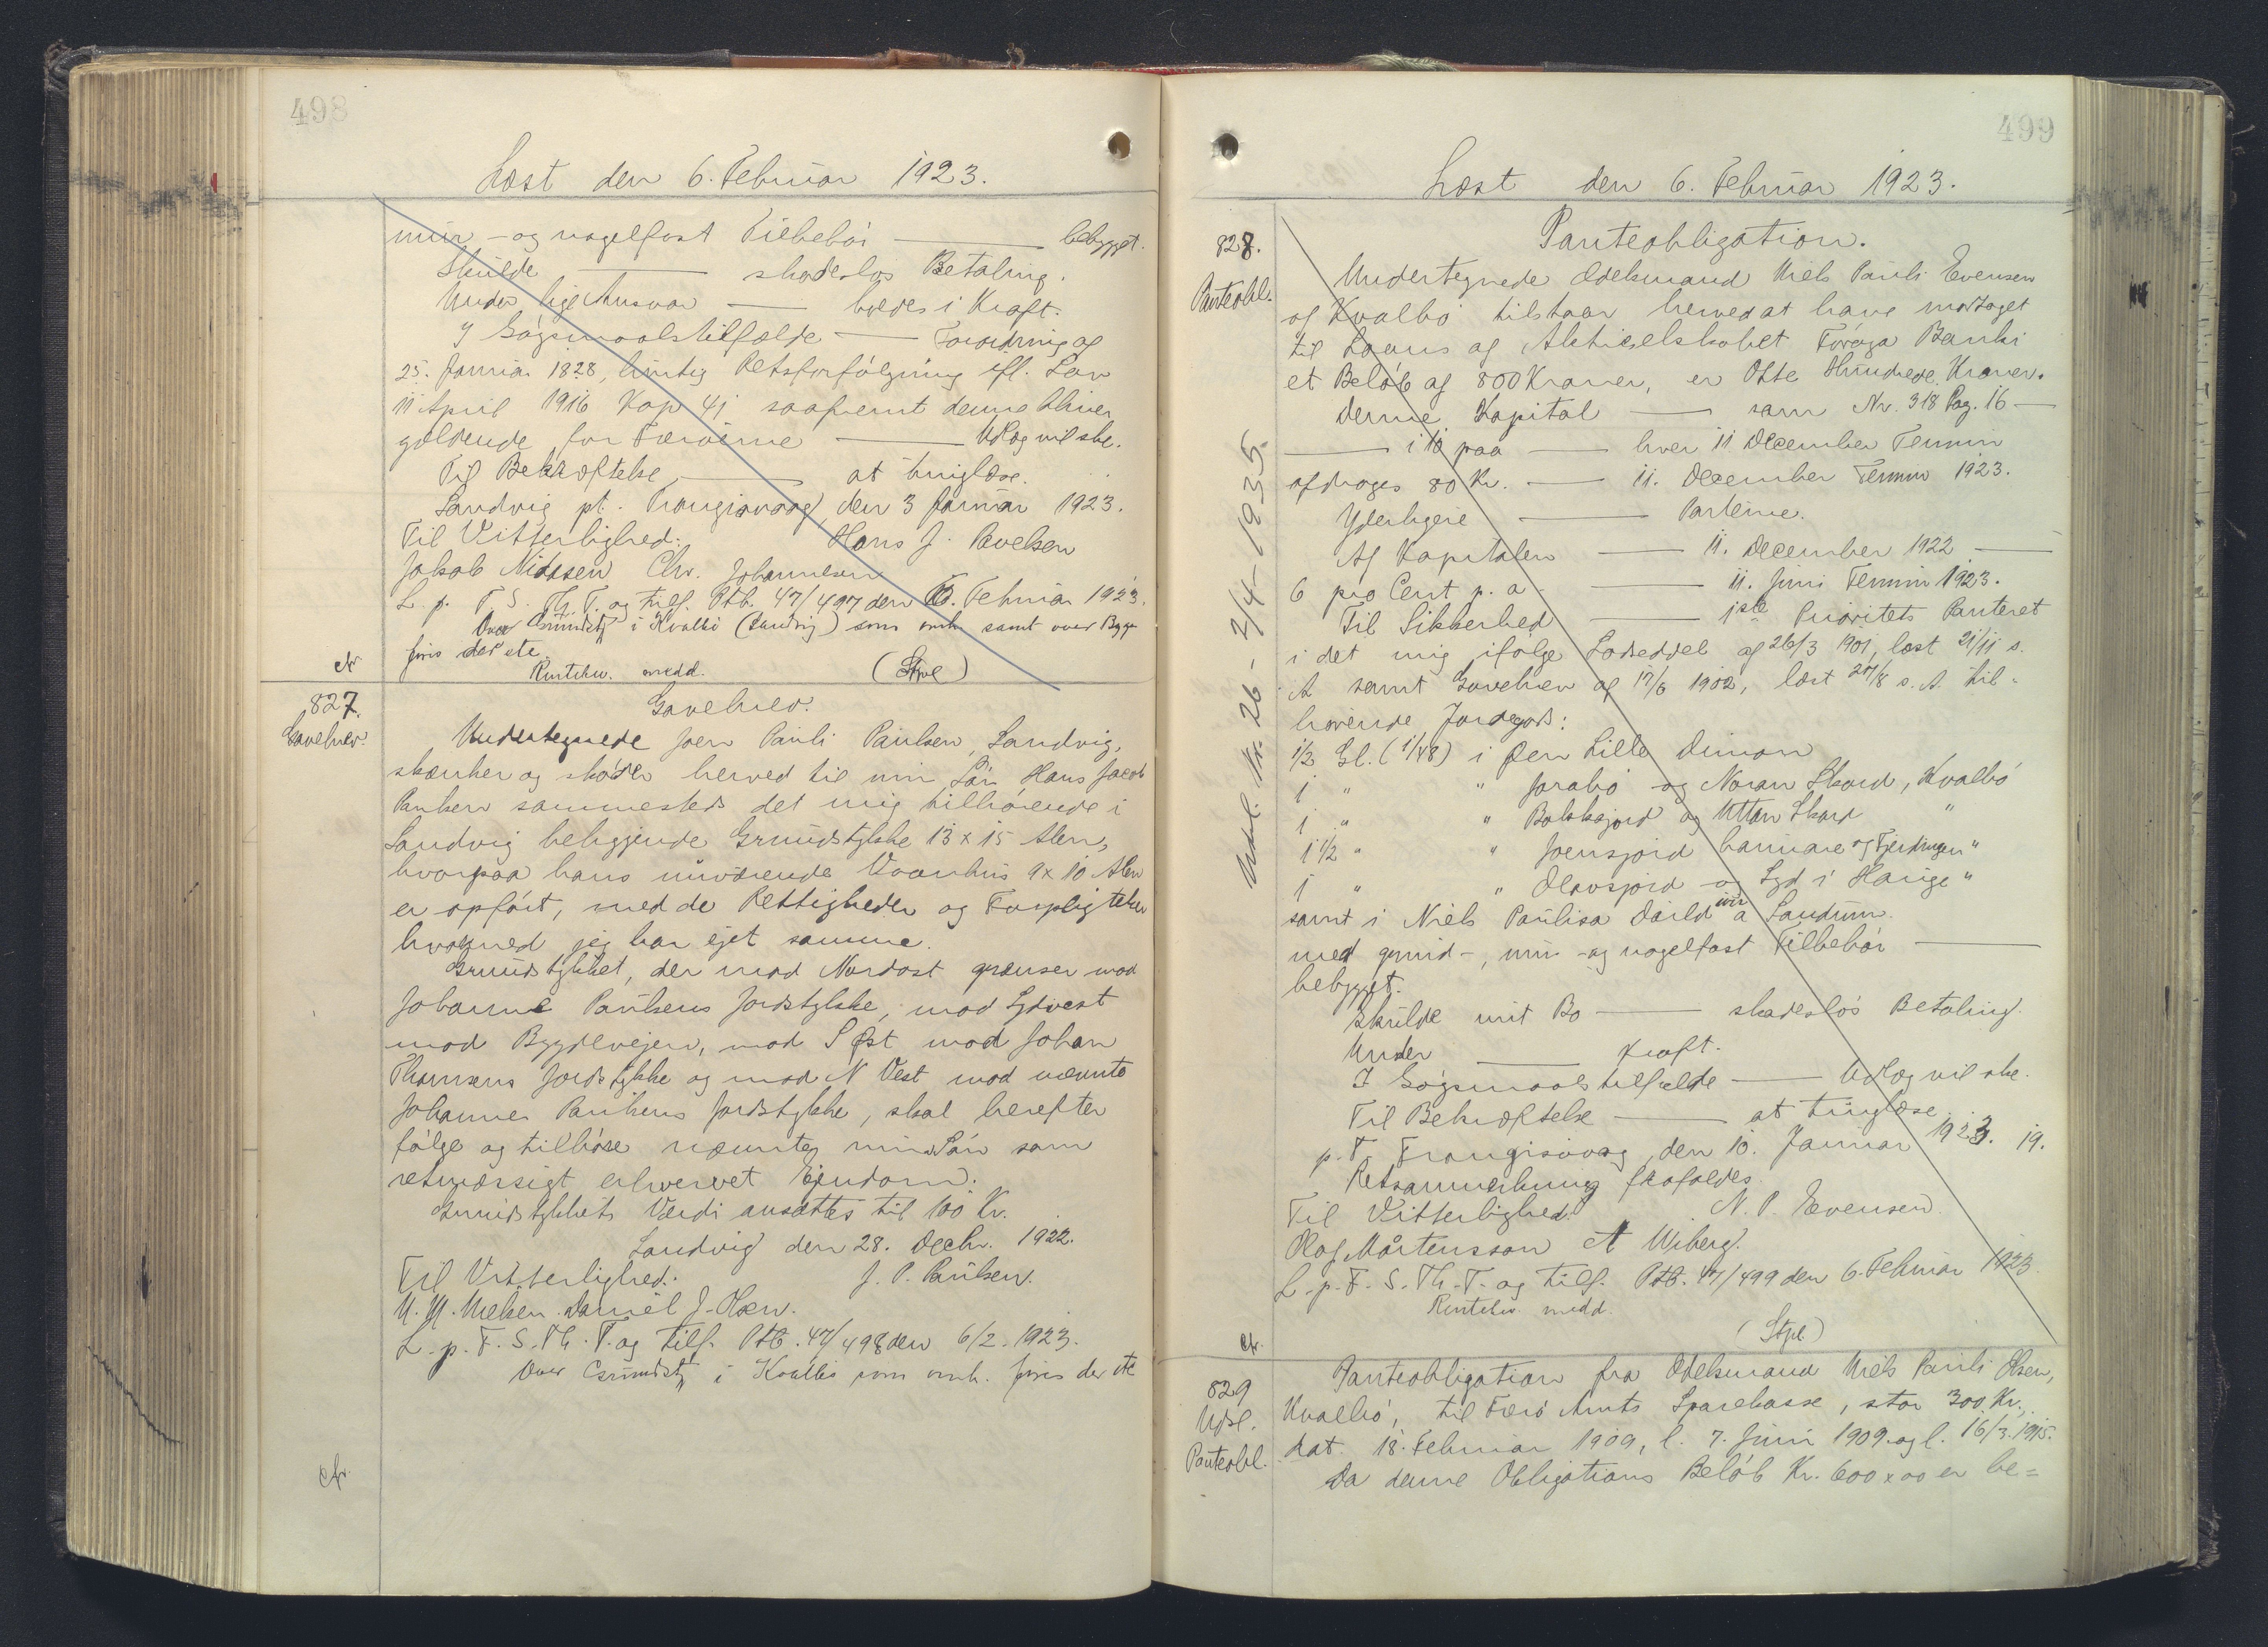 498
Læst den 6. Februar 1923.
mur- og nagelfast Tilbehör — bebygget.
Skulde — skadeslös Betaling.
Under lige Ansvar — holdes i Kraft.
I Sögsmaalstilfælde — Forordning af
25. Januar 1828, hurtig Retsforfölgning ifl. Lov
11 April 1916 Kap 41 saafremt denne bliver
gældende for Færöerne — Udlæg vil ske.
Til Bekræftelse — at tinglæse.
Sandvig pt. Trangisvaag den 3 Januar 1923.
Til Vitterlighed: Hans J. Pavelsen
Jakob Nidasen Chr. Johannesen
L. p. F. S. Th. T. og tilf. Ptb. 47/497 den 6. Februar 1923.
Over Grundst i Kvalbö (Sandvig) som omh. samt over Bygg
fris der etc.
Rentekv. medd. (Stpl)
cfr.
827.
Gavebrev.
Gavebrev.
Undertegnede Joen Pauli Paulsen, Sandvig,
skænker og skøder herved til min Sön Hans Jacob
Paulsen sammesteds det mig tilhörende i
Sandvig beliggende Grundstykke 13 x 15 Alen,
hvorpaa hans nuværende Vaanhus 9 x 10 Alen
er opfört, med de Rettigheder og Forpligtelser
hvormed jeg har ejet samme.
Grundstykket, der mod Nordost grænser mod
Johannes Paulsens Jordstykke, mod Sydvest
mod Bygdevejen, mod S Øst mod Johan
Thomsens Jordstykke og mod N Vest mod nævnte
Johannes Paulsens Jordstykke, skal herefter
fölge og tilhöre nævnte min Sön som
retmæssigt erhvervet Ejendom.
Grundstykkets Værdi ansættes til 100 Kr.
Sandvig den 28. Decbr. 1922.
Til Vitterlighed: J. P. Paulsen.
M. M. Nielsen. Daniel J. Holm.
L. p. F. S. Th. T. og tilf. Ptb. 47/498 den 6/2 1923.
Over Grundst i Kvalbö som omh. fris der etc
cfr.
499
Læst den 6. Februar 1923.
828.
Panteobl.
Panteobligation.
Undertegnede Odelsmand Niels Pauli Evensen
af Kvalbö tilstaar herved at have modtaget
til Laans af Aktieselskabet Föroya Banki
et Belöb af 800 Kroner, er Otte Hundrede Kroner.
Denne Kapital — som Nr. 318 Pag. 16 —
— i 10 paa — hver 11 December Termin
afdrages 80 Kr. — 11. December Termin 1923.
Yderligere — Parterne.
Af Kapitalen — 11. December 1922 —
6 pro Cent p. a. — 11. Juni Termin 1923.
Til Sikkerhed — 1ste Prioritets Panteret
i det mig ifölge Lodseddel af 26/3 1901, læst 21/11 s.
A. samt Gavebrev af 17/6 1902, læst 27/8 s. A. til-
hörende Jordegods:
1/2 Gl. (1/48) i Den Lille Dimon
1 " " Joralió og Noran Skord, Kvalbö
1 " " Bolsksjord og Uttan Skard "
1 1/2 " " Joensjord hannare og Fjerdingen "
1 " " Olavsjord og Syd i Harige "
samt i Niels Paulisa Døild uir a Sandum.
med grund-, mur- og nagelfast Tilbehör —
bebygget.
Skulde mit Bo — skadeslös Betaling.
Under — Kraft.
I Sögsmaalstilfælde — Udlæg vil ske.
Til Bekræftelse — at tinglæse
p. T. Trangisvaag, den 10. Januar 1923. 19.
Retsanmerkning frafaldes.
Til Vitterlighed: N. P. Evensen.
Olof Mårtensson A Wiberg.
L. p. F. S. Th. T. og tilf. Ptb. 47/499 den 6. Februar 1923
Rentekv. medd.
(Stpl)
cfr.
Udsl. Nr. 26 - 2/4 - 1935.
829
Udsl.
Panteobl.
Panteobligation fra Odelsmand Niels Pauli Olsen,
Kvalbö, til Færö Amts Sparekasse, stor 300 Kr.,
dat. 18. Februar 1909, l. 7. Juni 1909 og l. 16/3. 1915.
Da denne Obligations Belöb Kr. 600 x 00 er be=